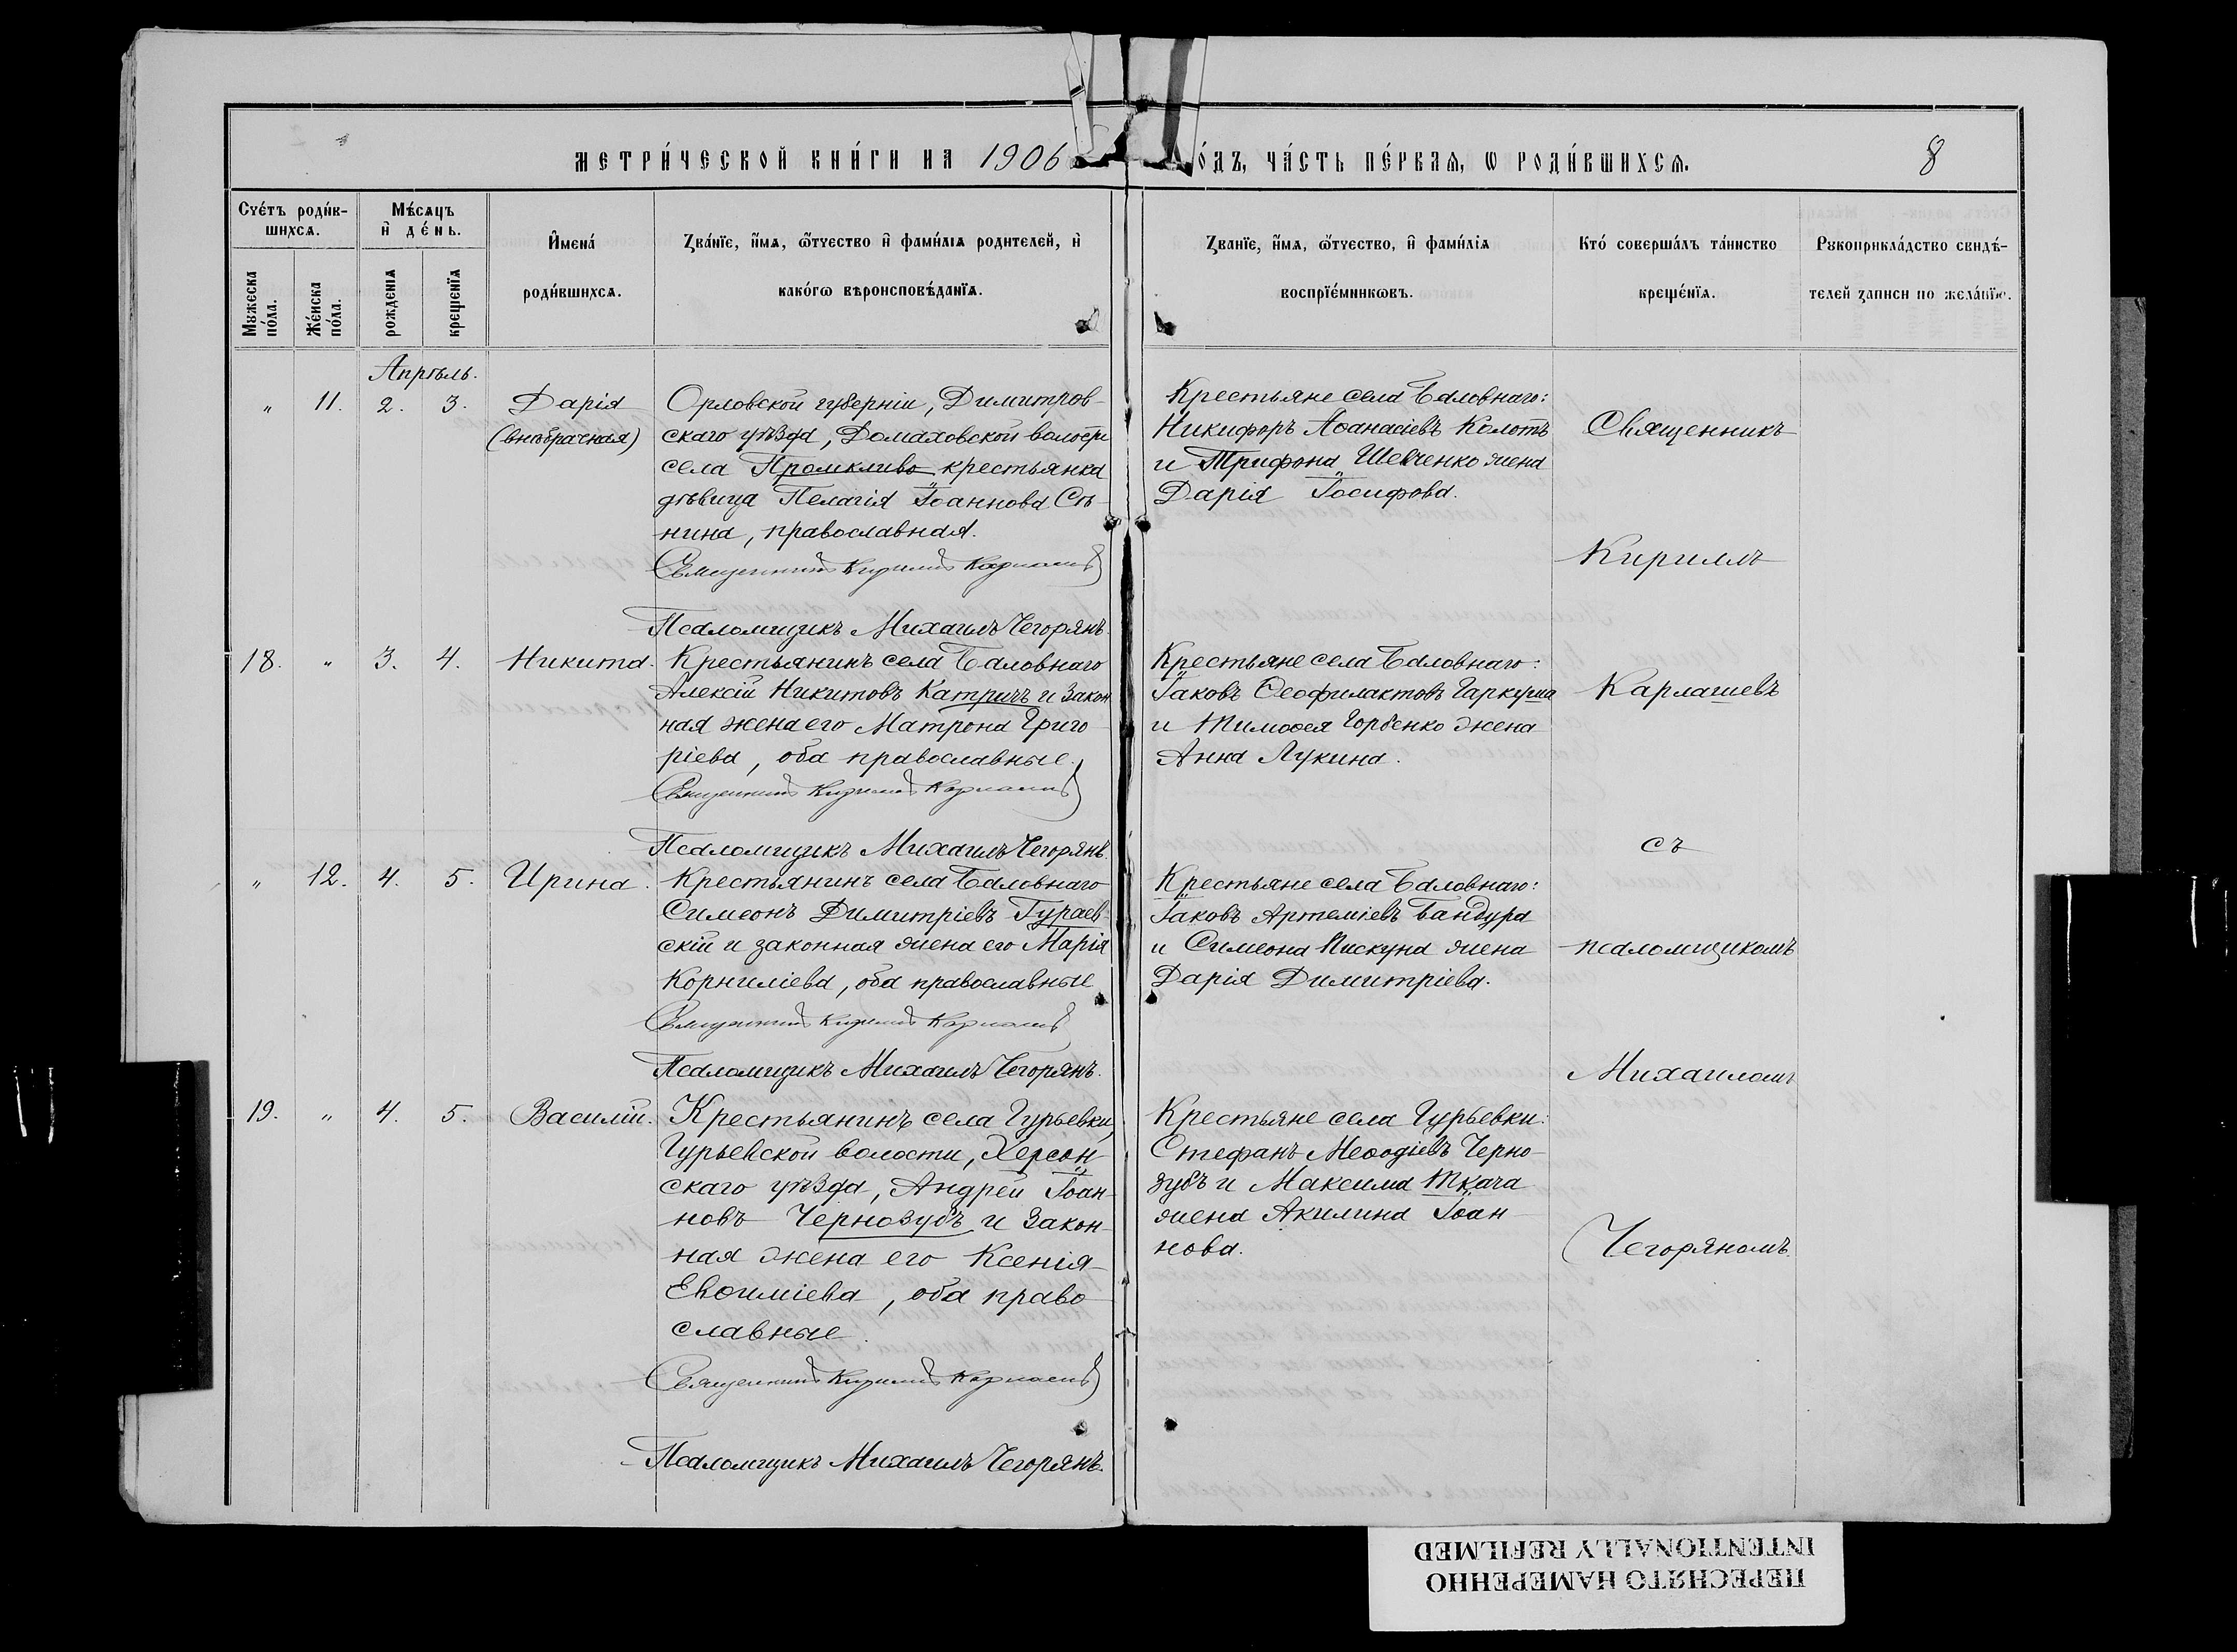 метри́ческой кни́ги на 1906
о́дъ, ча́сть пе́рвая, ѡ роди́вшихсѧ.
8
Сче́тъ роди́в-
шихсѧ.
Мужеска
по́ла.
Же́нска
по́ла.
Мѣ́сѧцъ
и҆ де́нь.
рожденїѧ
крещенїѧ
И҆мена́
роди́вшихсѧ.
Зва́нїе, и҆́мѧ, ѻ҆́тчество и҆ фами́лїѧ родителей, и҆
како́гѡ вѣроисповѣ́данїѧ.
Званїе, и҆́мѧ, ѻ҆́тчество, и҆ фами́лїѧ
воспрїе́мникѡвъ.
Кто́ соверша́лъ та́инство
креще́нїѧ.
Рукоприкла́дство свидѣ́-
телей записи по жела́нїю.
Апрѣль.
" 11. 2. 3. Дарія
(внѣбрачная)
Орловской губерніи, Димитров-
скаго уѣзда, Домаховской волости
села Промкливо крестьянка
дѣвица Пелагія Іоаннова Сѣ-
нина, православная.
Священникъ Кириллъ Карлашевъ
Псаломщикъ Михаилъ Чегорянъ.
Крестьяне села Баловнаго:
Никифоръ Аѳанасіевъ Колотъ
и Трифона Шевченко жена
Дарія Іосифова.
18. " 3. 4. Никита.
Крестьянинъ села Баловнаго
Алексій Никитовъ Катричъ и закон-
ная жена его Матрона Григо-
ріева, оба православные.
Священникъ Кириллъ Карлашевъ
Псаломщикъ Михаилъ Чегорянъ.
Крестьяне села Баловнаго:
Іаковъ Ѳеофилактовъ Гаркуша
и Тимоѳея Горбенко жена
Анна Лукина.
" 12. 4. 5. Ирина.
Крестьянинъ села Баловнаго
Симеонъ Димитріевъ Гураев-
скій и законная жена его Марія
Корниліева, оба православные
Священникъ Кириллъ Карлашевъ
Псаломщикъ Михаилъ Чегорянъ.
Крестьяне села Баловнаго:
Іаковъ Артеміевъ Бандура
и Симеона Пискуна жена
Дарія Димитріева.
19. " 4. 5. Василій.
Крестьянинъ села Гурьевки,
Гурьевской волости, Херсон-
скаго уѣзда, Андрей Іоан-
новъ Чернозубъ и закон-
ная жена его Ксенія
Евѳиміева, оба право-
славные.
Священникъ Кириллъ Карлашевъ
Псаломщикъ Михаилъ Чегорянъ.
Крестьяне села Гурьевки:
Стефанъ Меѳодіевъ Черно-
зубъ и Максима Ткача
жена Акилина Іоан-
нова.
Священникъ
Кириллъ
Карлашевъ
съ
псаломщикомъ
Михаиломъ
Чегоряномъ.
ПЕРЕСНЯТО НАМЕРЕННО
INTENTIONALLY REFILMED